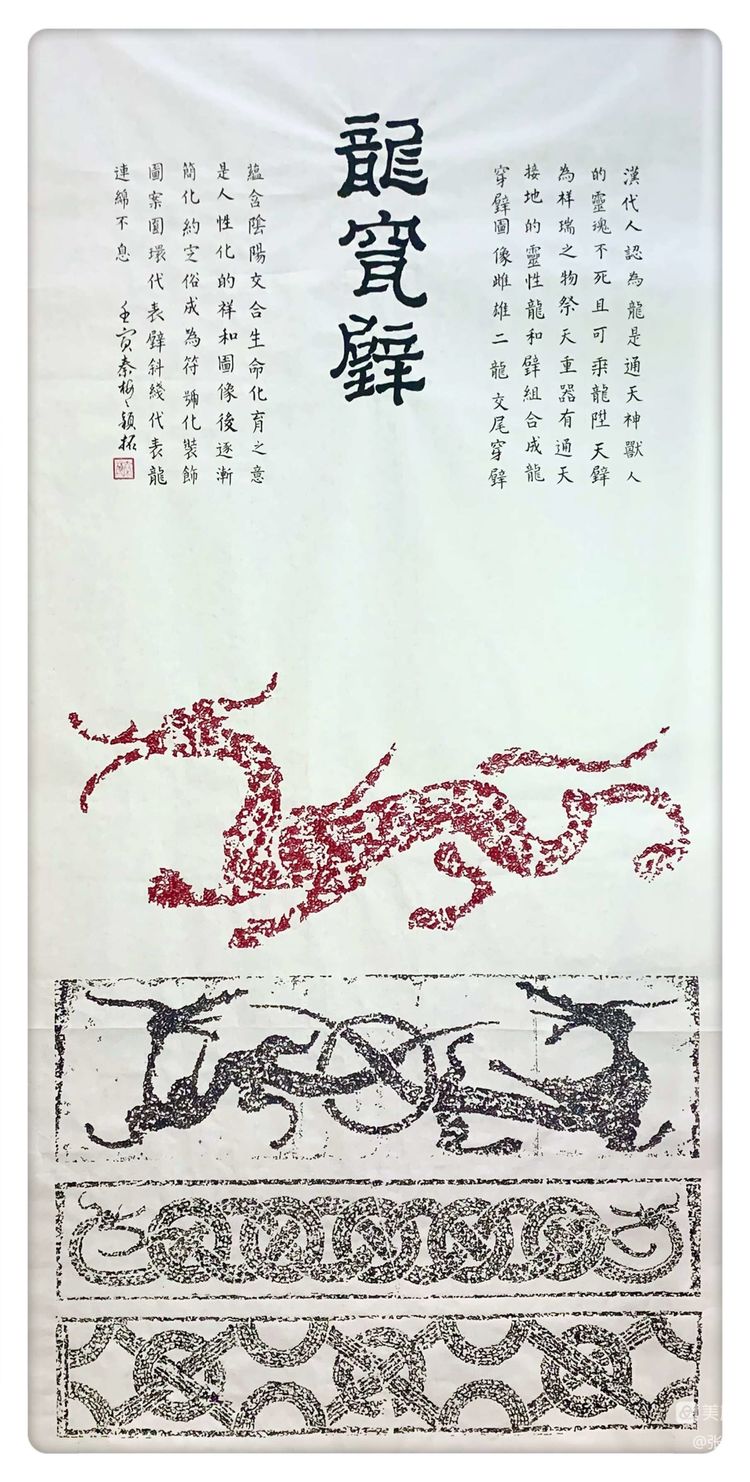 龍穿璧
漢代人認為龍是通天神獸人
的靈魂不死且可乘龍陞天璧
為祥瑞之物祭天重器有通天
接地的靈性龍和璧組合成龍
穿璧圖像雌雄二龍交尾穿璧
蘊含陰陽交合生命化育之意
是人性化的祥和圖像後逐漸
簡化約定俗成為符號化裝飾
圖案圓環代表璧斜綫代表龍
連綿不息 壬寅秦梅穎拓
美
@张